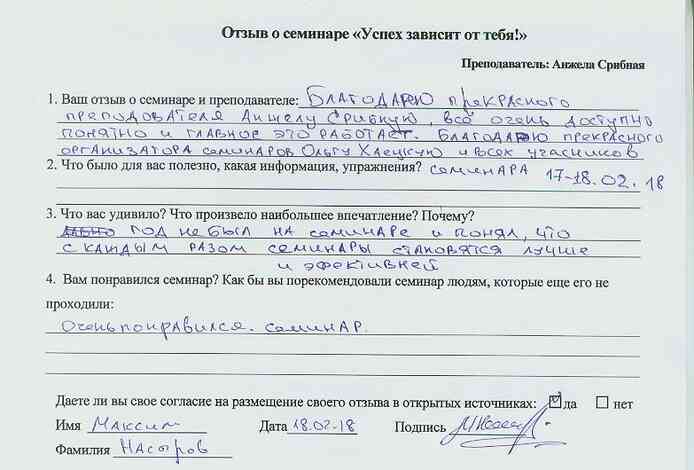 Отзыв о семинаре «Успех зависит от тебя!»
Преподаватель: Анжела Срибная
1. Ваш отзыв о семинаре и преподавателе: Благодарю прекрасного
преподователя Анжелу Срибную, всё очень доступно
понятно и главное это работает. Благодарю прекрасного
организатора семинаров Ольгу Хаецкую и всех учасников
2. Что было для вас полезно, какая информация, упражнения? семинара 17-18.02.18
3. Что вас удивило? Что произвело наибольшее впечатление? Почему?
давно год не был на семинаре и понял, что
с каждым разом семинары становятся лучше
и эфективней
4. Вам понравился семинар? Как бы вы порекомендовали семинар людям, которые еще его не
проходили:
Очень понравился. семинар.
Даете ли вы свое согласие на размещение своего отзыва в открытых источниках: да нет
Имя Максим Дата 18.02-18 Подпись
Фамилия Насыров